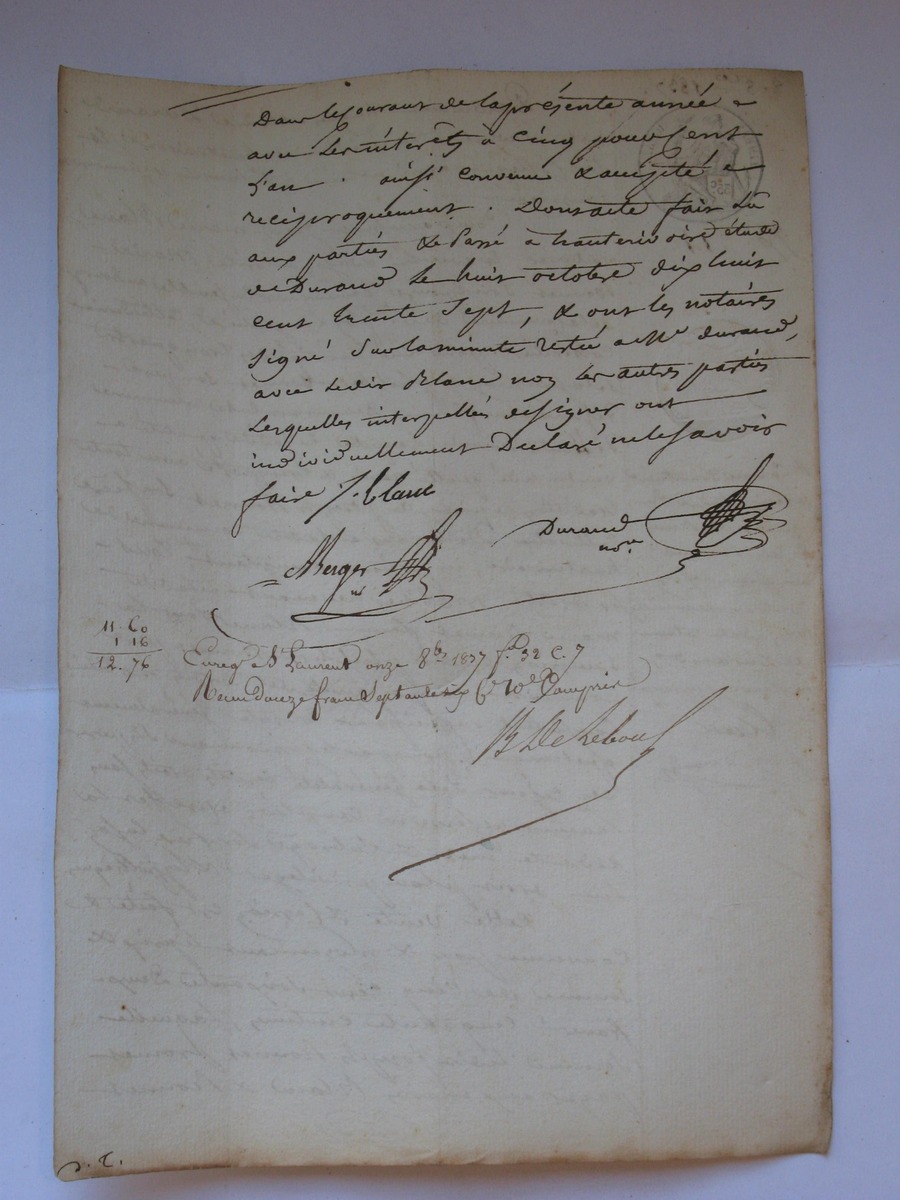 Dans le courant de la présente année
avec les intérêts à cinq pour cent
l'an. ainsi convenu & accepté
réciproquement. Dont acte fait Lû
aux parties & Passé à hauterive étude
de Durand le huit octobre dix huit
cent trente Sept, & ont les notaires
Signé Sur la minute restée a Me durand,
avec ledit Blanc non les autres parties
Lesquelles interpellés de Signer ont
individuellement Declaré ne le Savoir
faire J. blanc
Durand
nore
Berger
11. 60
1 16
12. 76
Enregé à St Laurent onze 8bre 1837 fo 32 C. 7
Reçu Douze francs Septante six Ces 10e Compris
De Reboul